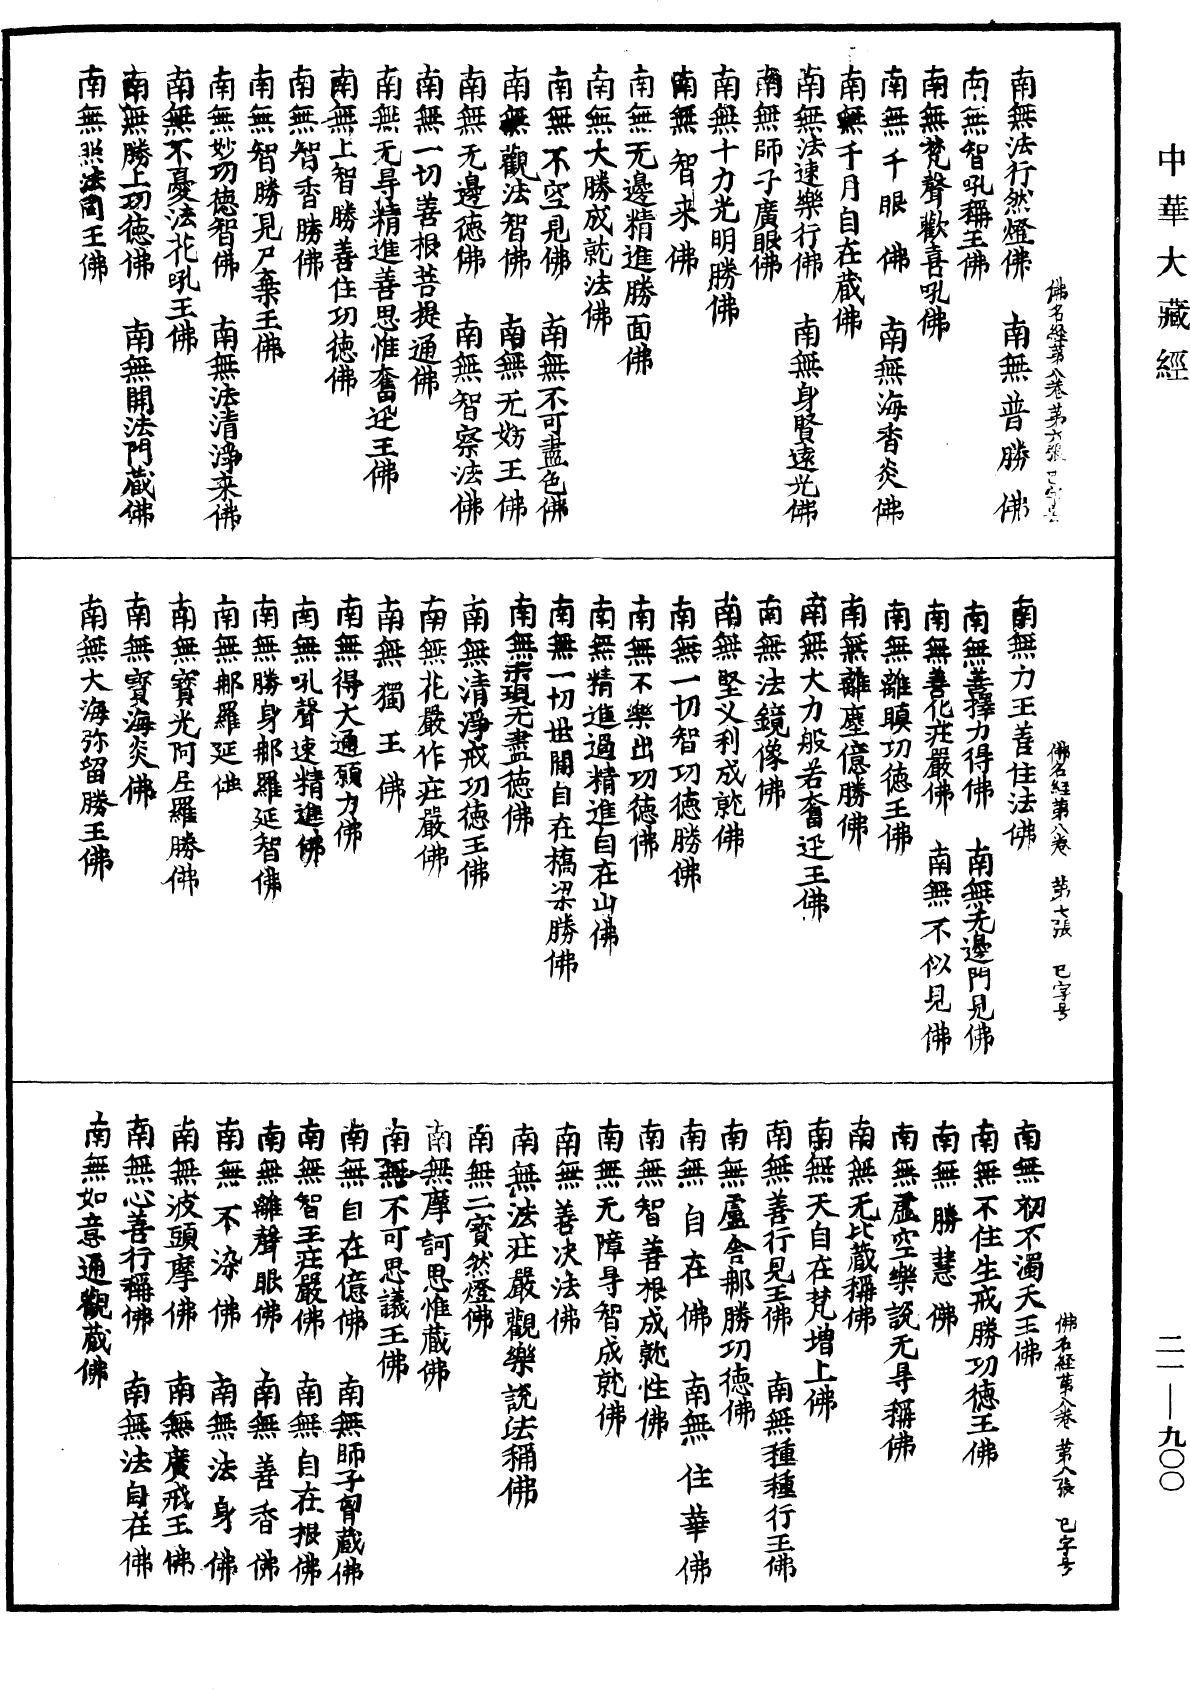 中華大藏經
佛名經第八卷 第六張 已字号
南無法行然燈佛 南無普勝佛
南無智吼稱王佛
南無梵聲歡喜吼佛
南無千眼佛 南無海香炎佛
南無千月自在藏佛
南無法速樂行佛 南無身賢速光佛
南無師子廣眼佛
南無十力光明勝佛
南無智来佛
南無无邊精進勝面佛
南無大勝成就法佛
南無不空見佛 南無不可盡色佛
南無觀法智佛 南無无妨王佛
南無无邊德佛 南無智察法佛
南無一切善根菩提通佛
南無无㝵精進善思惟奮迅王佛
南無上智勝善住功德佛
南無智香勝佛
南無智勝見尸棄王佛
南無妙功德智佛 南無法清淨来佛
南無不憂法花吼王佛
南無勝上功德佛 南無開法門藏佛
南無照法同王佛
佛名經第八卷 第七張 已字号
南無力王善住法佛
南無善擇力得佛 南無无邊門見佛
南無善花莊嚴佛 南無不似見佛
南無離瞋功德王佛
南無離塵億勝佛
南無大力般若奮迅王佛
南無法鏡像佛
南無堅义利成就佛
南無一切智功德勝佛
南無不樂出功德佛
南無精進過精進自在山佛
南無一切世間自在橋梁勝佛
南無示現无盡德佛
南無清淨戒功德王佛
南無花嚴作莊嚴佛
南無獨王佛
南無得大通願力佛
南無吼聲速精進佛
南無勝身那羅延智佛
南無那羅延佛
南無寶光阿尼羅勝佛
南無寶海炎佛
南無大海弥留勝王佛
佛名經第八卷 第八張 已字号
南無初不濁天王佛
南無不住生戒勝功德王佛
南無勝慧佛
南無虛空樂說无㝵稱佛
南無无比藏稱佛
南無天自在梵增上佛
南無善行見王佛 南無種種行王佛
南無盧舍那勝功德佛
南無自在佛 南無住華佛
南無智善根成就性佛
南無无障㝵智成就佛
南無善决法佛
南無法莊嚴觀樂說法稱佛
南無二寶然燈佛
南無摩訶思惟藏佛
南無不可思議王佛
南無自在億佛 南無師子胷藏佛
南無智王莊嚴佛 南無自在根佛
南無離聲眼佛 南無善香佛
南無不染佛 南無法身佛
南無波頭摩佛 南無廣戒王佛
南無心善行稱佛 南無法自在佛
南無如意通觀藏佛
二一—九〇〇